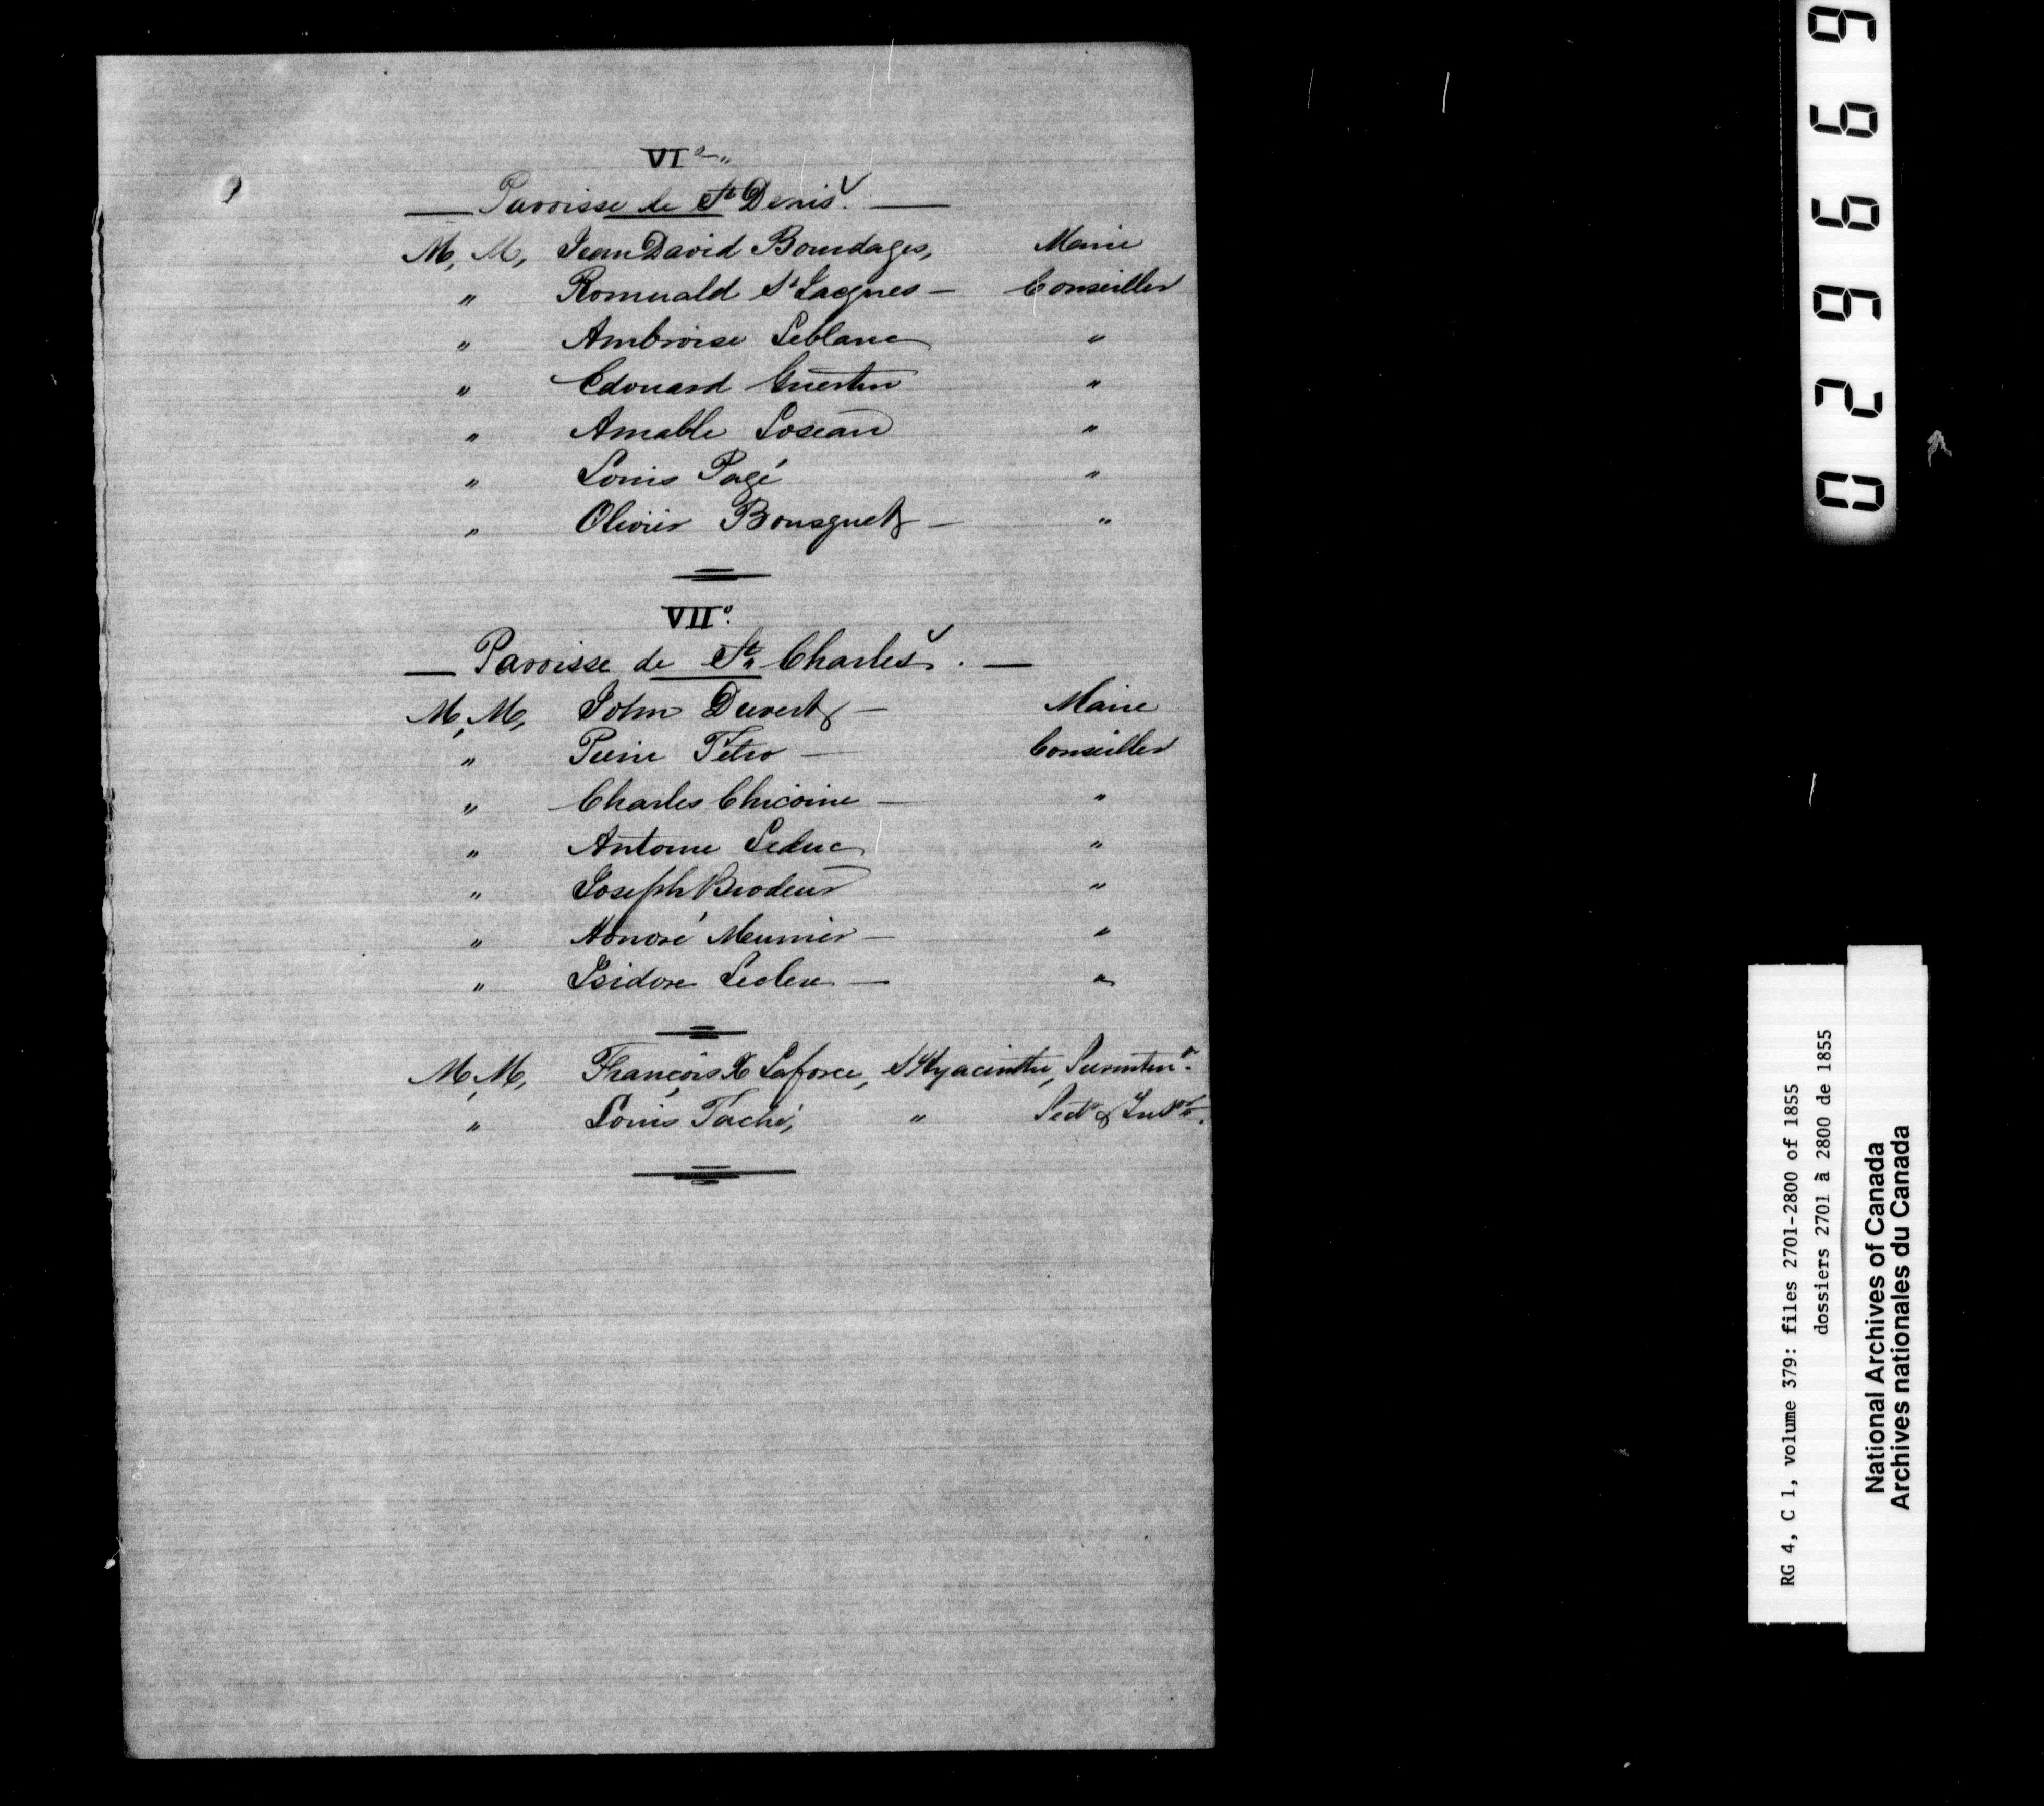 VI°
Paroisse de St Denis.
M, M, Jean David Bourdages, Maire
" Romuald St Jacques — Conseiller
" Ambroise Leblanc "
" Edouard Guertin "
" Amable Loseau "
" Louis Pagé "
" Olivier Bousquet — "
VII°.
Paroisse de St. Charles.
M, M, John Duvert — Maire
" Pierre Tétro — Conseiller
" Charles Chicoine — "
" Antoine Leduc "
" Joseph Brodeur "
" Honoré Meunier — "
" Isidore Leclerc — "
M, M, François X Laforce, St Hyacinthe, Surintdr.
" Louis Taché, "
029669
RG 4, C 1, volume 379: files 2701-2800 of 1855
dossiers 2701 à 2800 de 1855
National Archives of Canada
Archives nationales du Canada